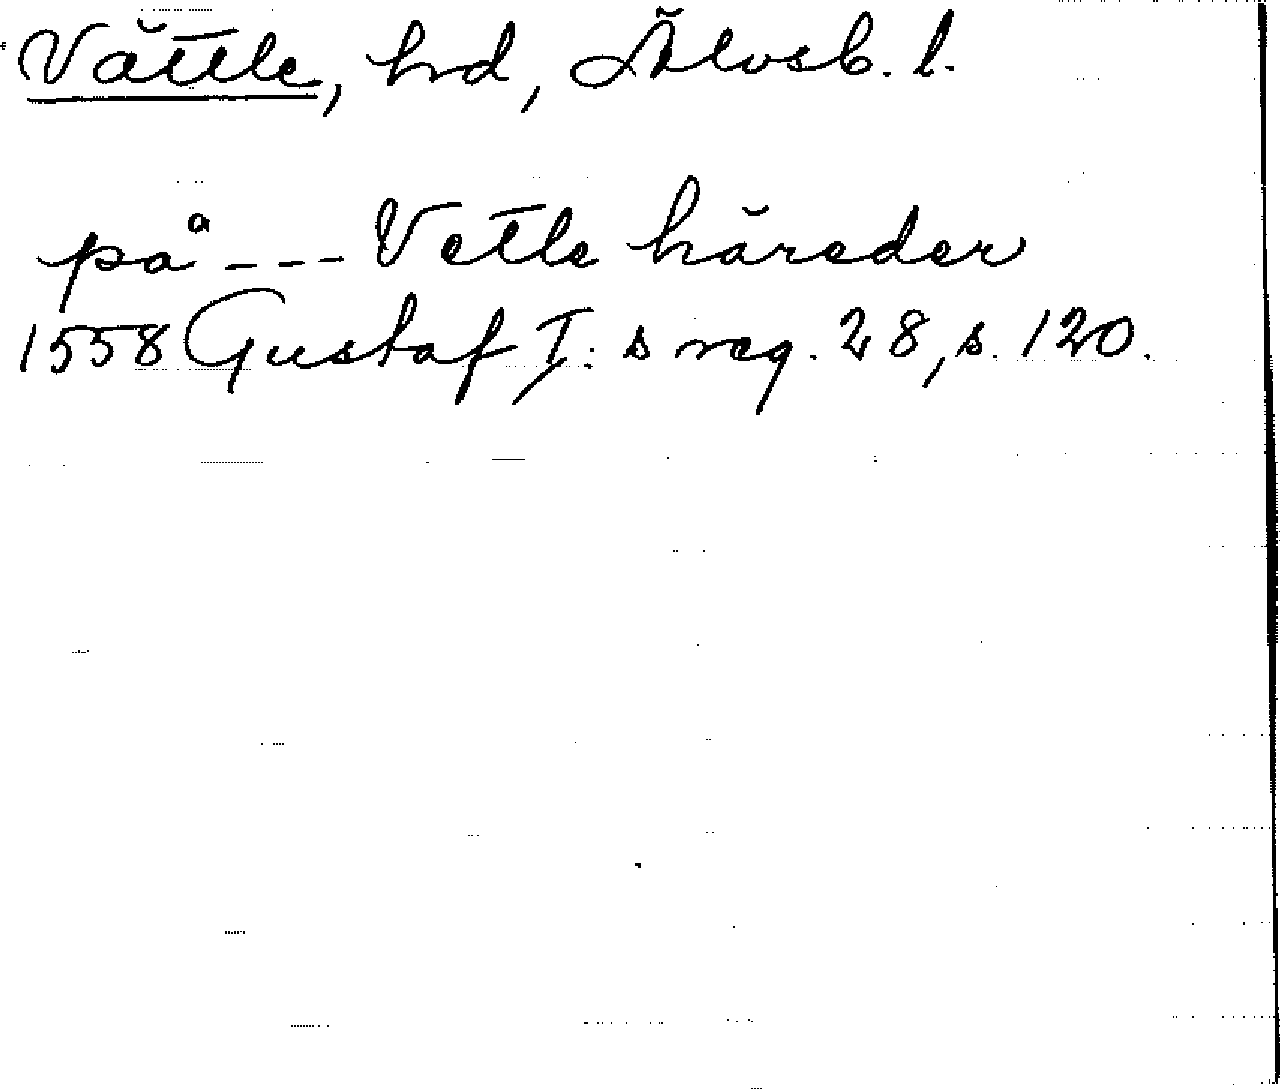 Vättle, hd, Älvsb. l.
på --- Vetle häreder
1558 Gustaf I:s reg. 28, s. 120.